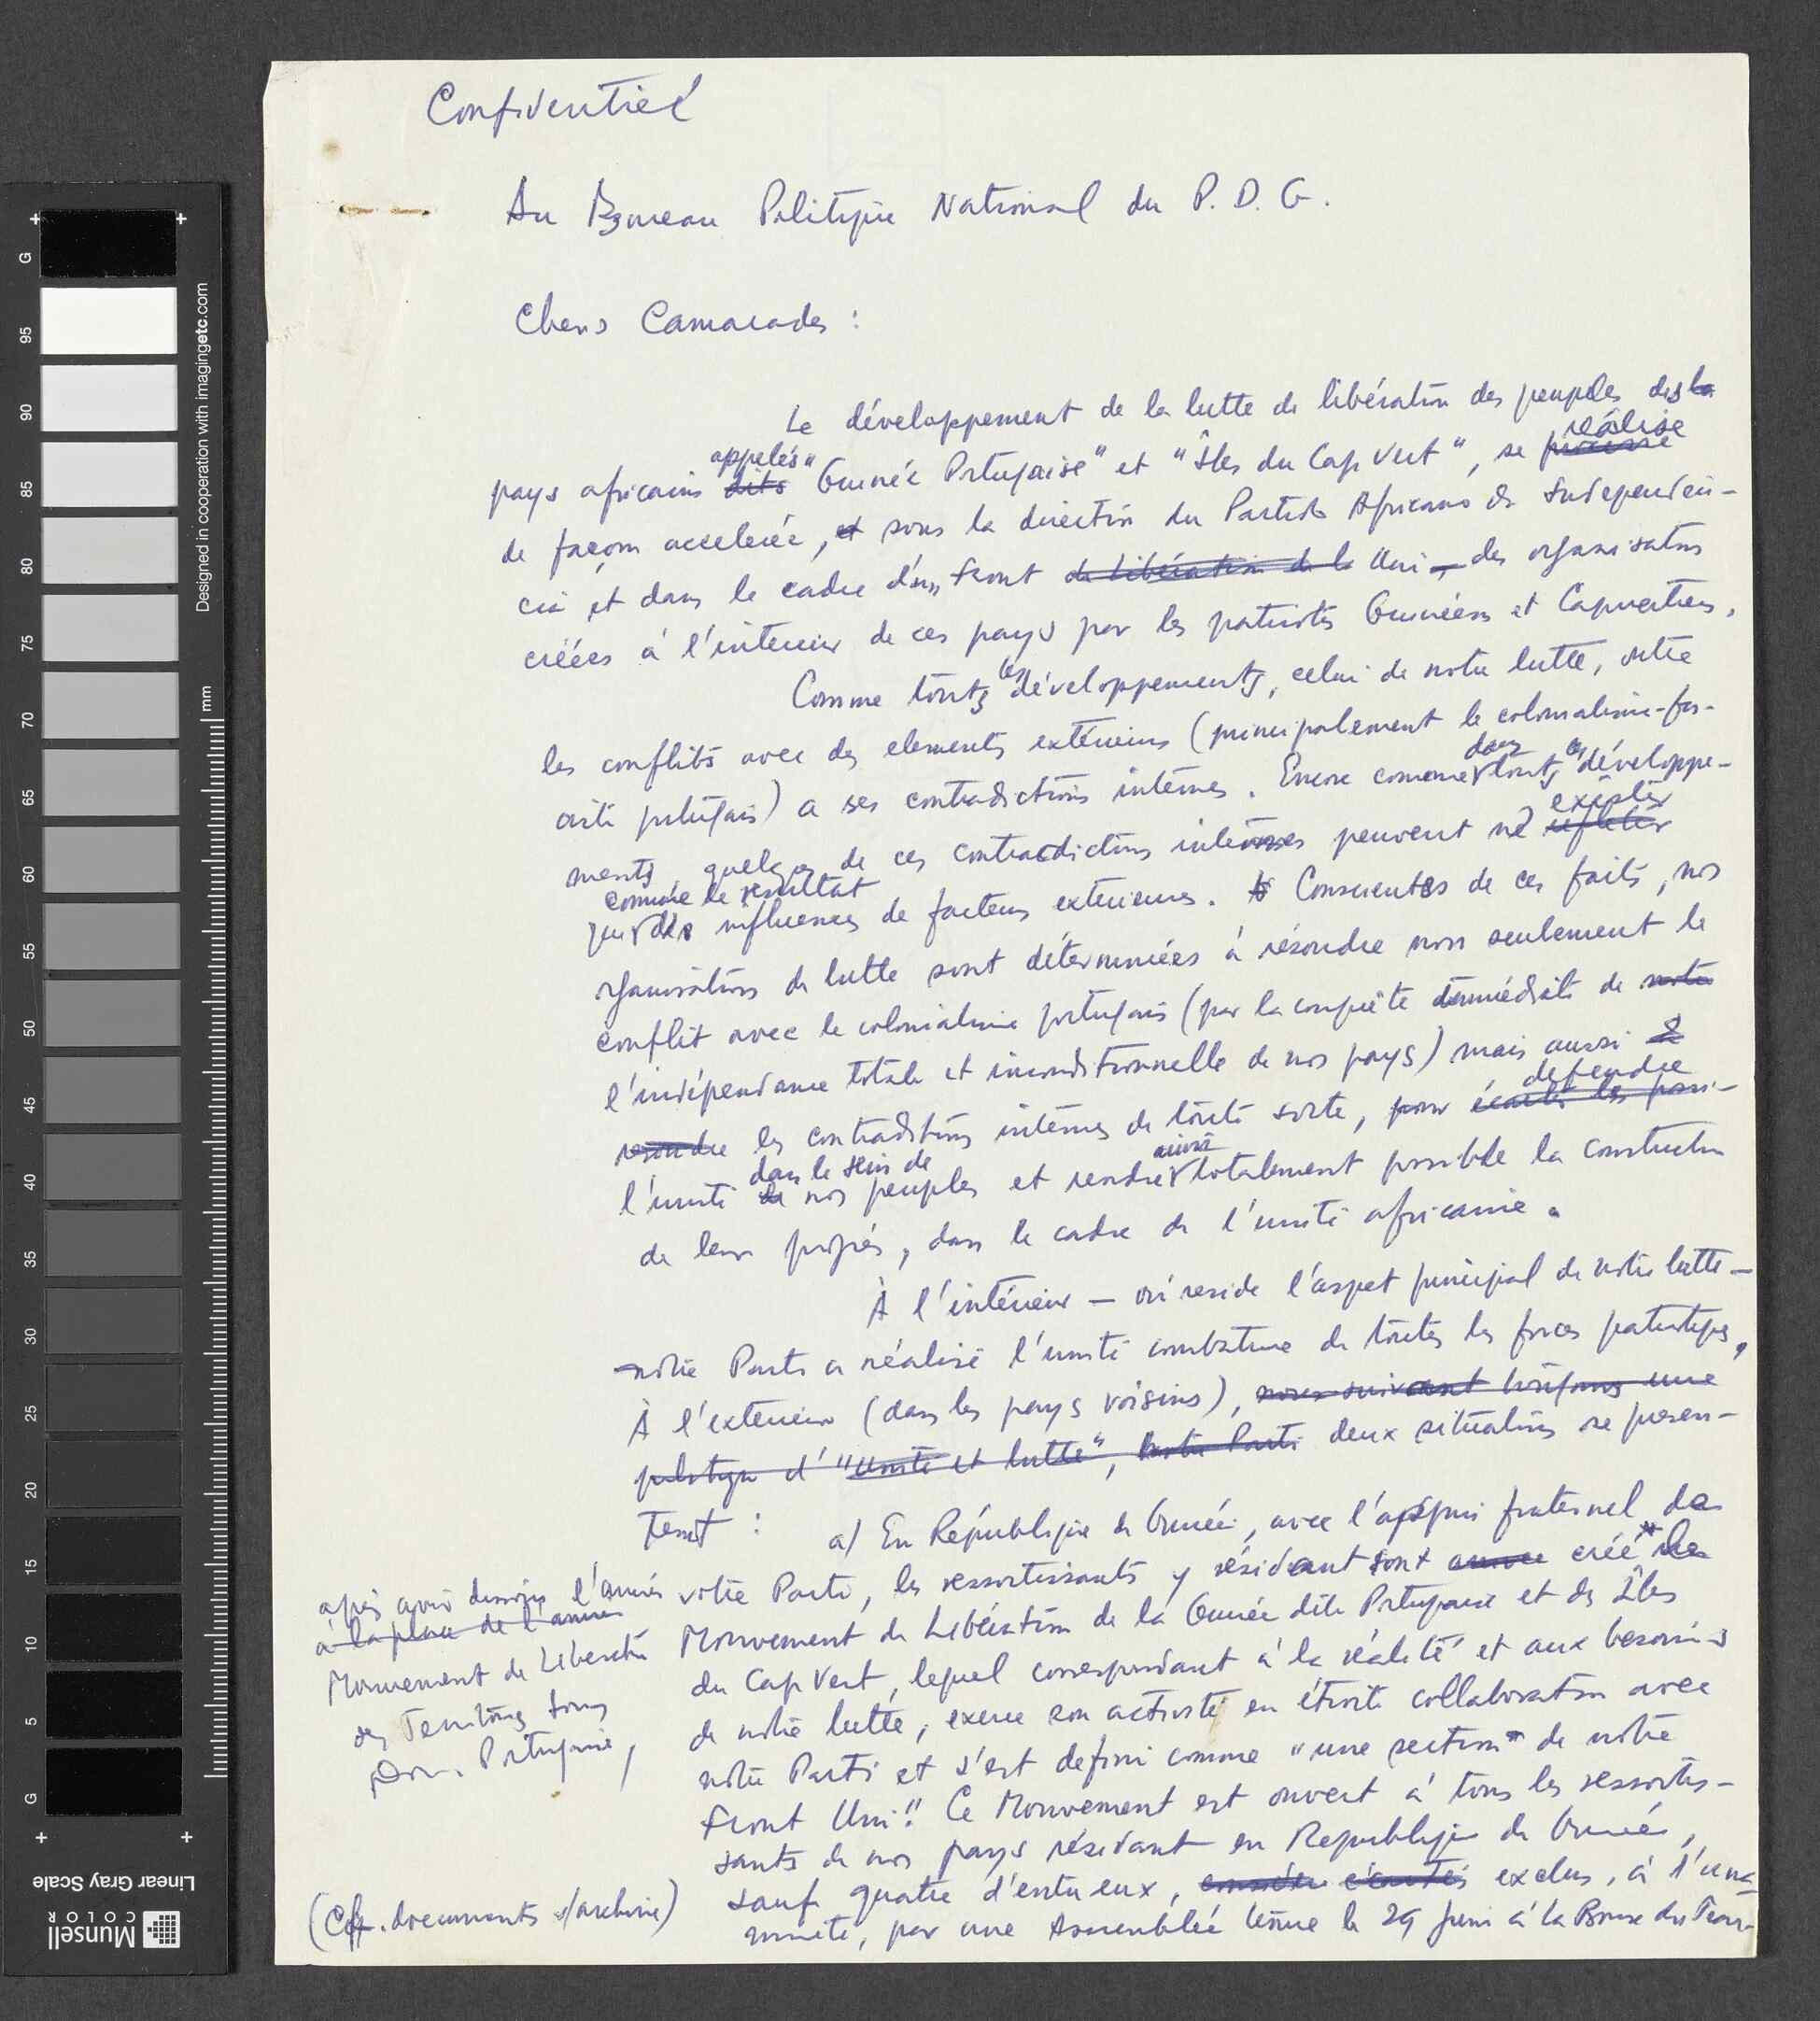 Confidentiel
Au Bureau Politique National du P. D. G.
Chers Camarades :
Le développement de la lutte de libération des peuples des la
pays africains dits appelés "Guinée Portugaise" et "Îles du Cap Vert", se réalise
de façon accelerée, et sous la direction du Partido Africano da Independên-
cia et dans le cadre d'un Front de Libération de l Uni - des organisations
créées à l'interieur de ces pays par les patriotes Guinéens et Capverdiens.
Comme touts les développements, celui de notre lutte, outre
les conflits avec des elements extérieurs (principalement le colonialisme-fas-
ciste portugais) a ses contradictions internes. Encore comme dans touts les développe-
ments, quelques de ces contradictions internes peuvent ne refléter exister
que comme le resultat des influences de facteurs exterieures. Conscientes de ces faits, nos
organisations de lutte sont déterminées à résoudre non seulement le
conflit avec le colonialisme portugais (par la conquête immédiate de notre
l'indépendance totale et inconditionnelle de nos pays) mais aussi
resoudre les contraditions internes de toute sorte, pour écarter les possi- defendre
l'unité de dans le sein de nos peuples et rendre ainsi totalement possible la construction
de leur progrès, dans le cadre de l'unité africaine.
À l'intérieur - où reside l'aspet principal de notre lutte -
notre Parti a réalisé l'unité combative de toutes les forces patriotiques.
À l'exterieur (dans les pays voisins), nous suivant toujours une
politique d'"unité et lutte", notre Parti deux situations se presen-
tent : a) En République de Guinée, avec l'appui fraternel de
votre Parti, les ressortissants y résidant sont créé le
Mouvement de Libération de la Guinée dite Portugaise et des Îles
du Cap Vert, lequel correspondant à la réalité et aux besoins
de notre lutte, exerce son activité en étroite collaboration avec
notre Parti et s'est defini comme "une section de notre
Front Uni". Ce Mouvement est ouvert à tous les ressortis-
sants de nos pays résidant en Republique de Guinée,
sauf quatre d'entre eux, écartés exclus, à l'una-
nimité, par une Assemblée tenue le 29 juin à la Bourse du Trava-
après avoir l'ancien
à la place de l'ancien
Mouvement de Liberation
des Territoires sous
Dom. Portugaise,
(Cf. documents s/archive)
Munsell COLOR
Linear Gray Scale
Designed in cooperation with imagingetc.com
mm
G 95 90 85 80 75 70 65 60 55 50 45 40 35 30 25 20 15 10 5 G